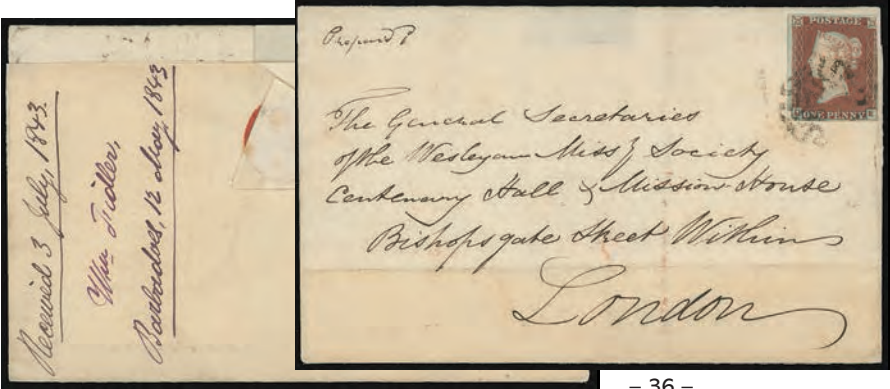 Received 3 July, 1843.
Wm Fidler,
Barbadoes, 12 May, 1843
Prepaid
POSTAGE
ONE PENNY
The General Secretaries
of the Wesleyan Missy Society
Centenary Hall & Mission House
Bishopsgate Street Within
London
– 36 –